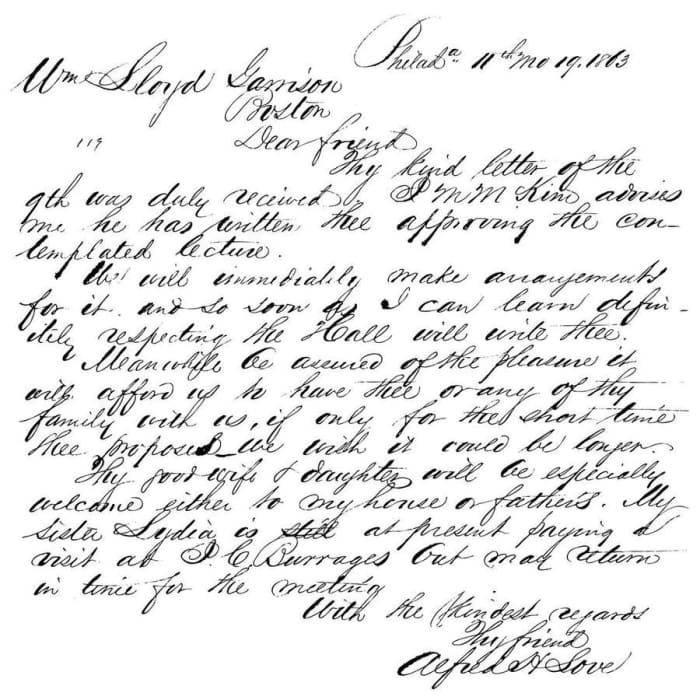 Philada. 11th mo 19. 1863
Wm Lloyd Garrison
Boston
119
Dear friend
Thy kind letter of the
9th was duly received, J M McKim advises
me he has written thee approving the con-
templated lecture.
We will immediately make arrangements
for it. and so soon as I can learn defin-
itely respecting the Hall will write thee.
Meanwhile be assured of the pleasure it
will afford us to have thee or any of thy
family with us, if only for the short time
thee proposes we wish it could be longer.
Thy good wife & daughter will be especially
welcome either to my house or father's. My
sister Lydia is still at present paying a
visit at J. C. Burrages but may return
in time for the meeting
With the kindest regards
Thy friend
Alfred H Love